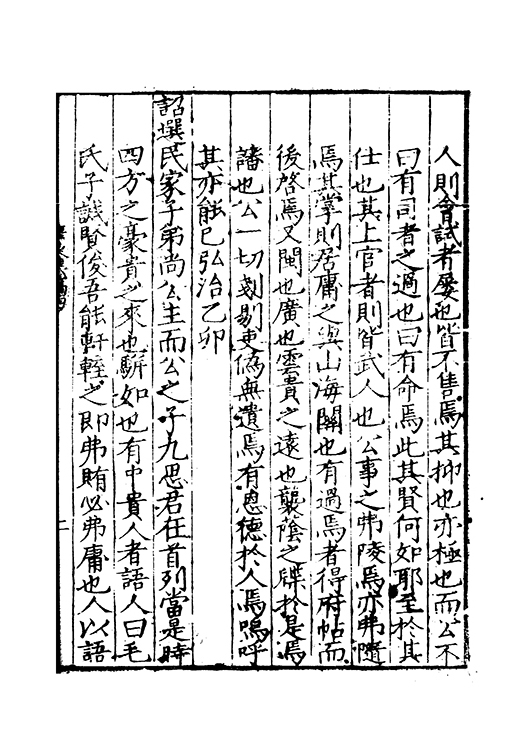 人則會試者屢也皆不售焉其抑也亦極也而公不
曰有司者之過也曰有命焉此其賢何如耶至於其
仕也其上官者則皆武人也公事之弗陵焉亦弗隨
焉其掌則居庸之與山海關也有過焉者得府帖而
後啓焉又閩也廣也雲貴之遠也襲蔭之牒於是焉
譜也公一切剗剔吏僞無遺焉有恩德於人焉嗚呼
其亦能已弘治乙卯
詔選民家子弟尚公主而公之子九思君在首列當是時
四方之豪貴之來也駢如也有中貴人者語人曰毛
氏子誠賢俊吾能軒輊之即弗賄必弗庸也人以語
二